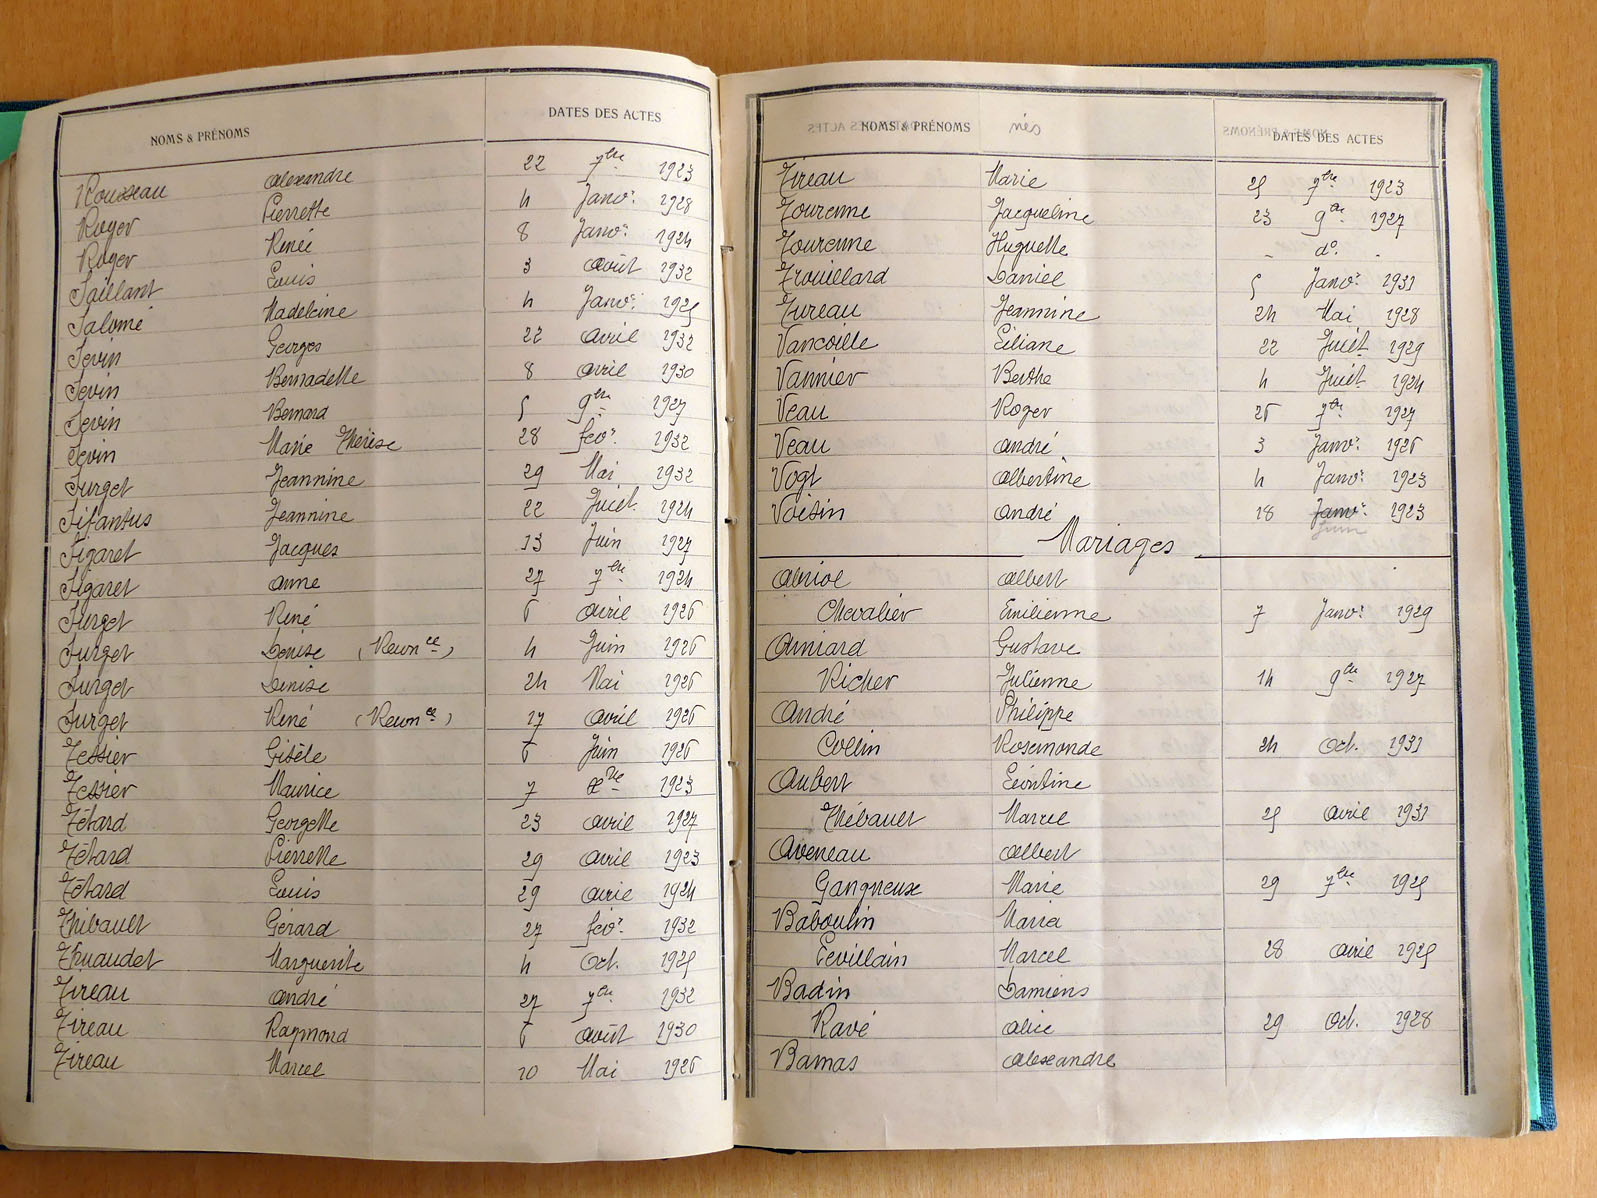 NOMS & PRÉNOMS DATES DES ACTES
Rousseau Alexandre 22 7bre 1923
Roger Pierrette 4 Janvr 1928
Roger Renée 8 Janvr 1924
Saillant Louis 3 Août 1932
Salomé Madeleine 4 Janvr 1925
Sevin Georges 22 Avril 1932
Sevin Bernadette 8 Avril 1930
Sevin Bernard 5 9bre 1927
Sevin Marie Thérèse 28 fevr 1932
Surget Jeannine 29 Mai 1932
Sifantus Jeannine 22 Juiet 1924
Sigaret Jacques 13 Juin 1927
Sigaret Anne 27 7bre 1924
Surget René 6 Avril 1926
Surget Denise (Reconce) 4 Juin 1926
Surget Denise 24 Mai 1926
Surget René (Reconce) 17 Avril 1926
Tessier Gisèle 6 Juin 1926
Tessier Maurice 7 Xbre 1923
Tétard Georgette 23 Avril 1927
Tétard Pierrette 29 Avril 1923
Tétard Louis 29 Avril 1924
Thibault Gérard 27 févr 1932
Thuaudet Marguerite 4 Oct. 1925
Tireau André 27 7bre 1932
Tireau Raymond 6 Août 1930
Tireau Marcel 10 Mai 1926
NOMS & PRÉNOMS nés DATES DES ACTES
Tireau Marie 25 7bre 1923
Tourenne Jacqueline 23 9bre 1927
Tourenne Huguette - do. -
Trouillard Daniel 5 Janvr 1931
Tureau Jeannine 24 Mai 1928
Vancoille Liliane 22 Juiet 1929
Vannier Berthe 4 Juiet 1924
Veau Roger 26 7bre 1927
Veau André 3 Janvr 1926
Vogt Albertine 4 Janvr 1923
Voisin André 18 Janvr 1923
Juin
Mariages
Abriol Albert
Chevalier Emilienne 7 Janvr 1929
Amiard Gustave
Richer Julienne 14 9bre 1927
André Philippe
Collin Rosemonde 24 Oct. 1931
Aubert Léontine
Thébault Marcel 25 Avril 1931
Aveneau Albert
Gangneux Marie 29 7bre 1925
Baboulin Maria
Levillain Marcel 28 Avril 1925
Badin Damiens
Ravé Alice 29 Oct. 1928
Bamas Alexandre